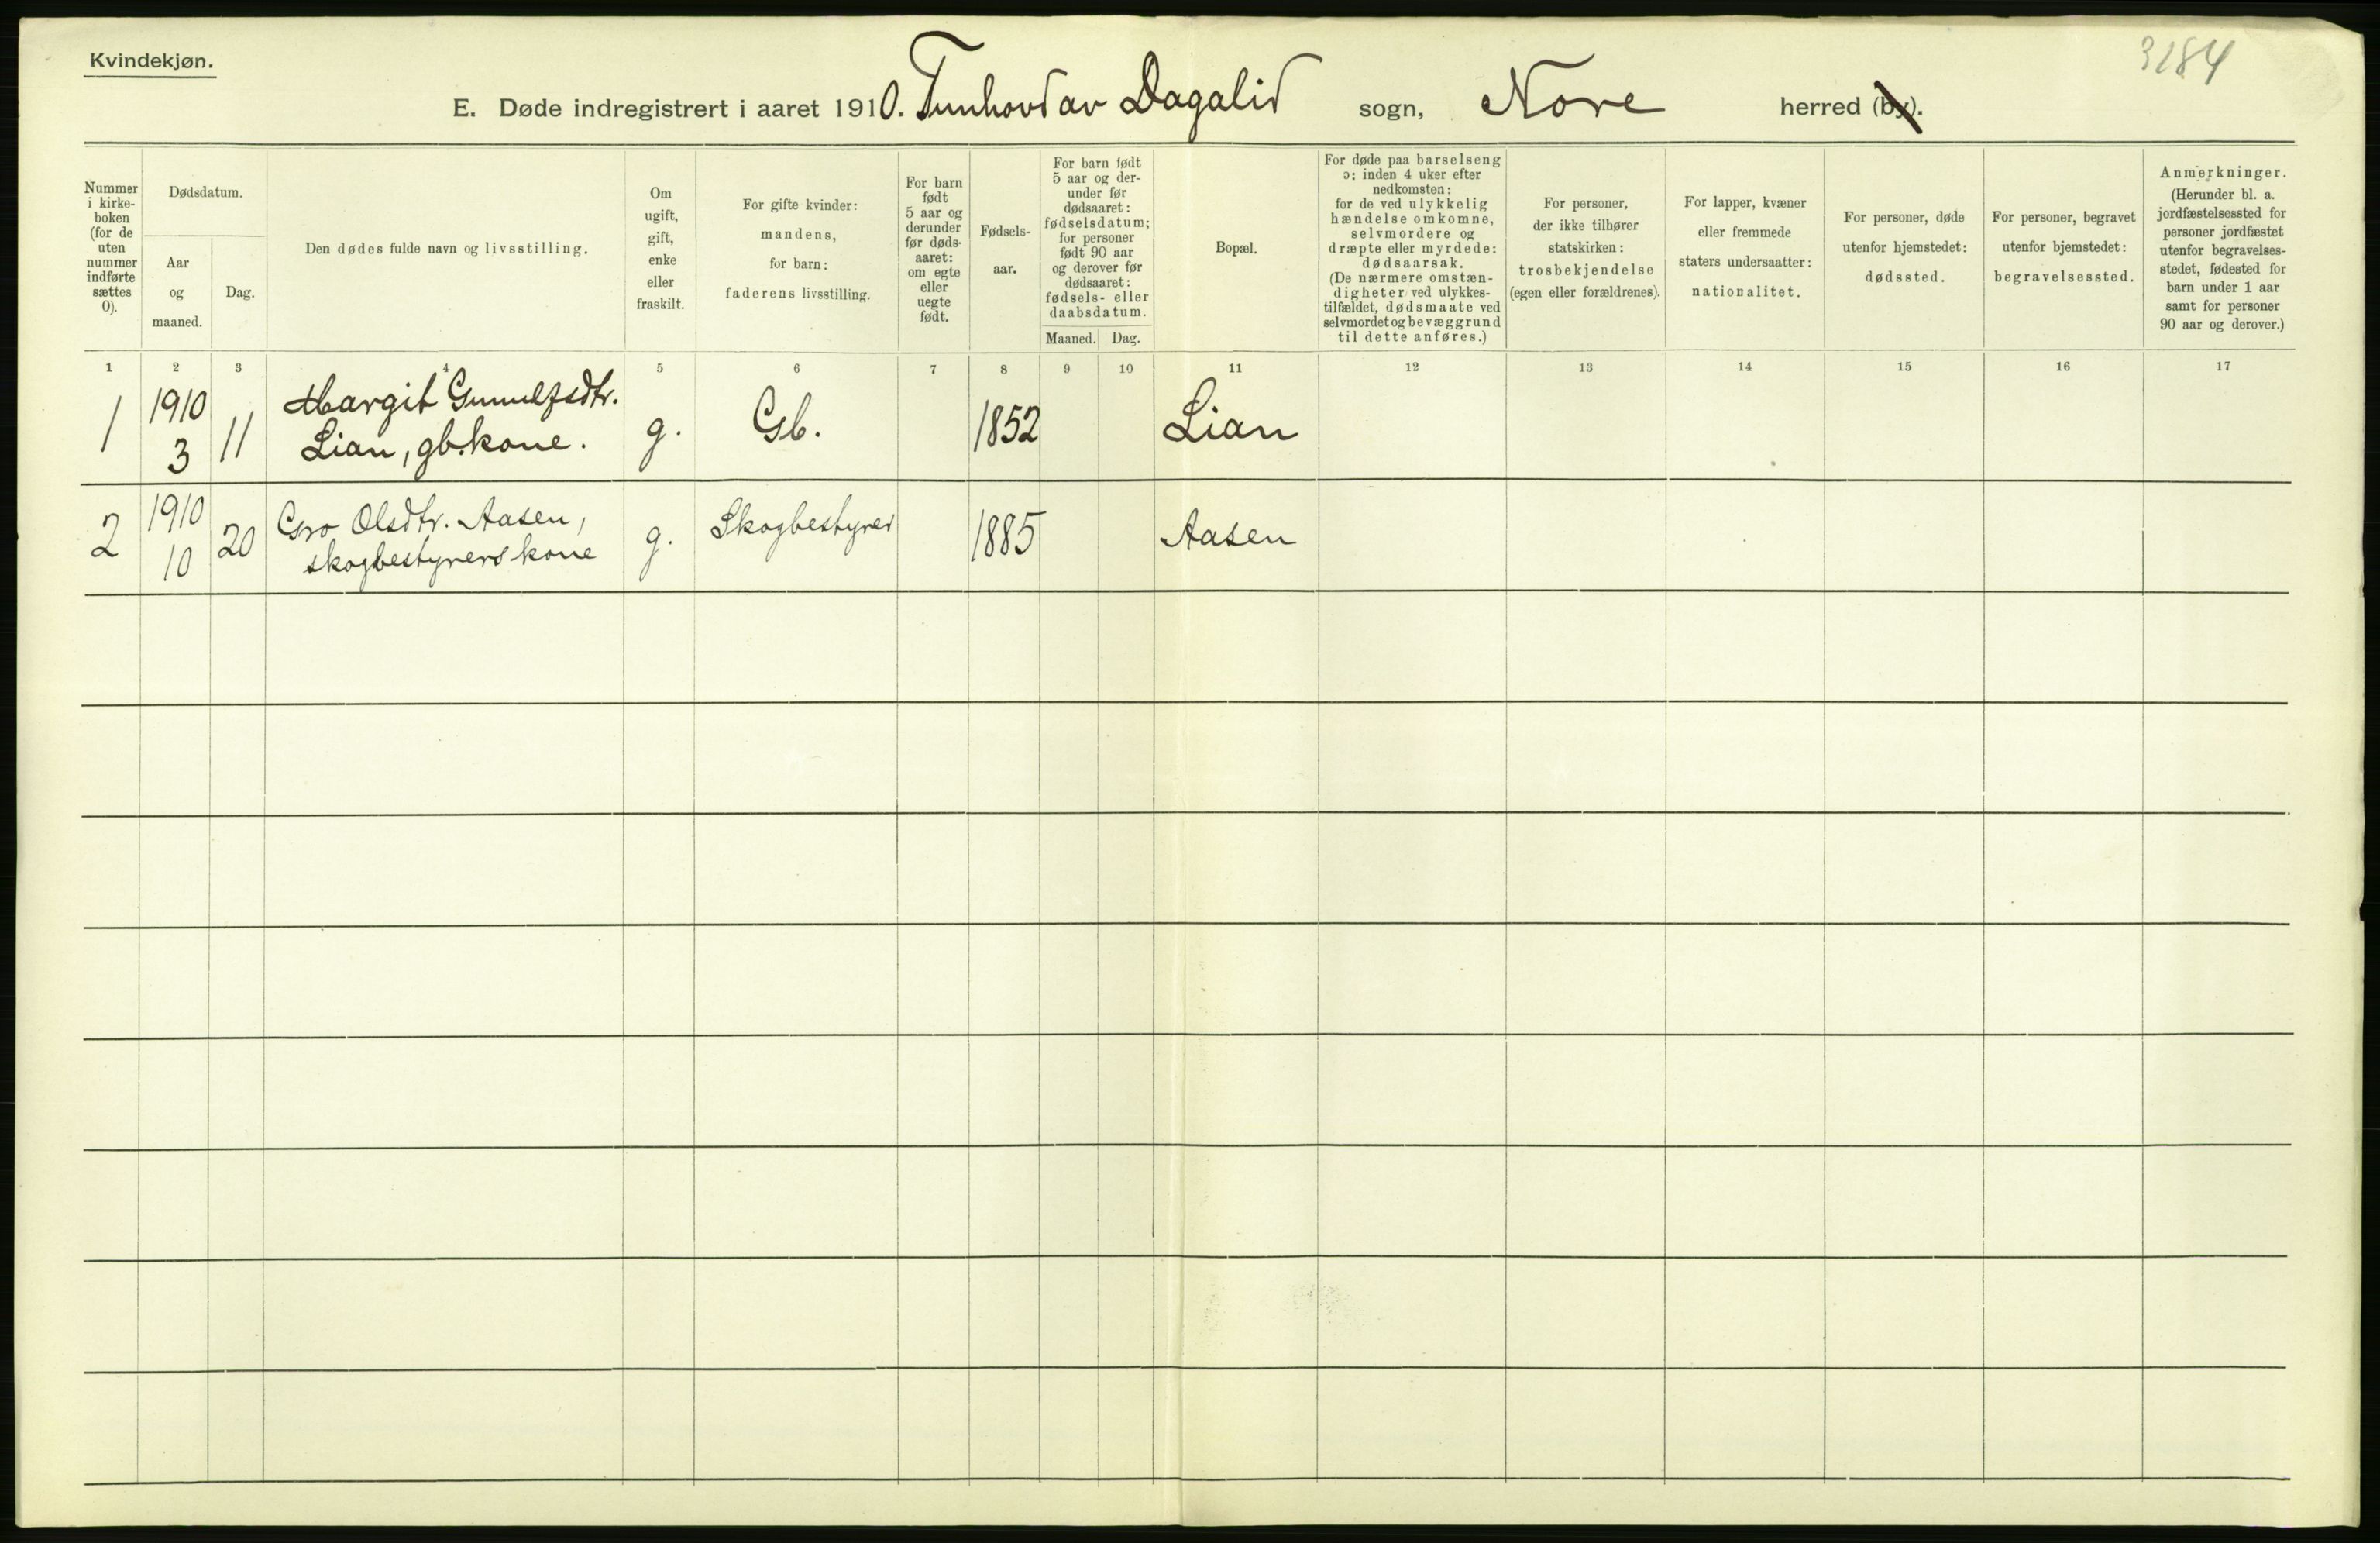 Kvindekjøn.
3184
E. Døde indregistrert i aaret 1910. Tunhovd av Dagalid sogn, Nore herred (by).
Nummer
i kirke-
boken
(for de
uten
nummer
indførte
sættes
0).
Dødsdatum.
Aar
og
maaned.
Dag.
Den dødes fulde navn og livsstilling.
Om
ugift,
gift,
enke
eller
fraskilt.
For gifte kvinder:
mandens,
for barn:
faderens livsstilling.
For barn
født
5 aar og
derunder
før døds-
aaret:
om egte
eller
uegte
født.
Fødsels-
aar.
For barn født
5 aar og der-
under før
dødsaaret:
fødselsdatum;
for personer
født 90 aar
og derover før
dødsaaret:
fødsels- eller
daabsdatum.
Maaned. Dag.
Bopæl.
For døde paa barselseng
ɔ: inden 4 uker efter
nedkomsten:
for de ved ulykkelig
hændelse omkomne,
selvmordere og
dræpte eller myrdede:
dødsaarsak.
(De nærmere omstæn-
digheter ved ulykkes-
tilfældet, dødsmaate ved
selvmordet og bevæggrund
til dette anføres.)
For personer,
der ikke tilhører
statskirken:
trosbekjendelse
(egen eller forældrenes).
For lapper, kvæner
eller fremmede
staters undersaatter:
nationalitet.
For personer, døde
utenfor hjemstedet:
dødssted.
For personer, begravet
utenfor bjemstedet:
begravelsessted.
Anmerkninger.
(Herunder bl. a.
jordfæstelsessted for
personer jordfæstet
utenfor begravelses-
stedet, fødested for
barn under 1 aar
samt for personer
90 aar og derover.)
1 2 3 4 5 6 7 8 9 10 11 12 13 14 15 16 17
1 1910 3 11 Margit Gunnulfsdtr.
Lian, gb.kone. g. Gb. 1852 Lian
2 1910 10 20 Gro Olsdtr. Aasen,
skogbestyrers kone g. Skogbestyrer 1885 Aasen